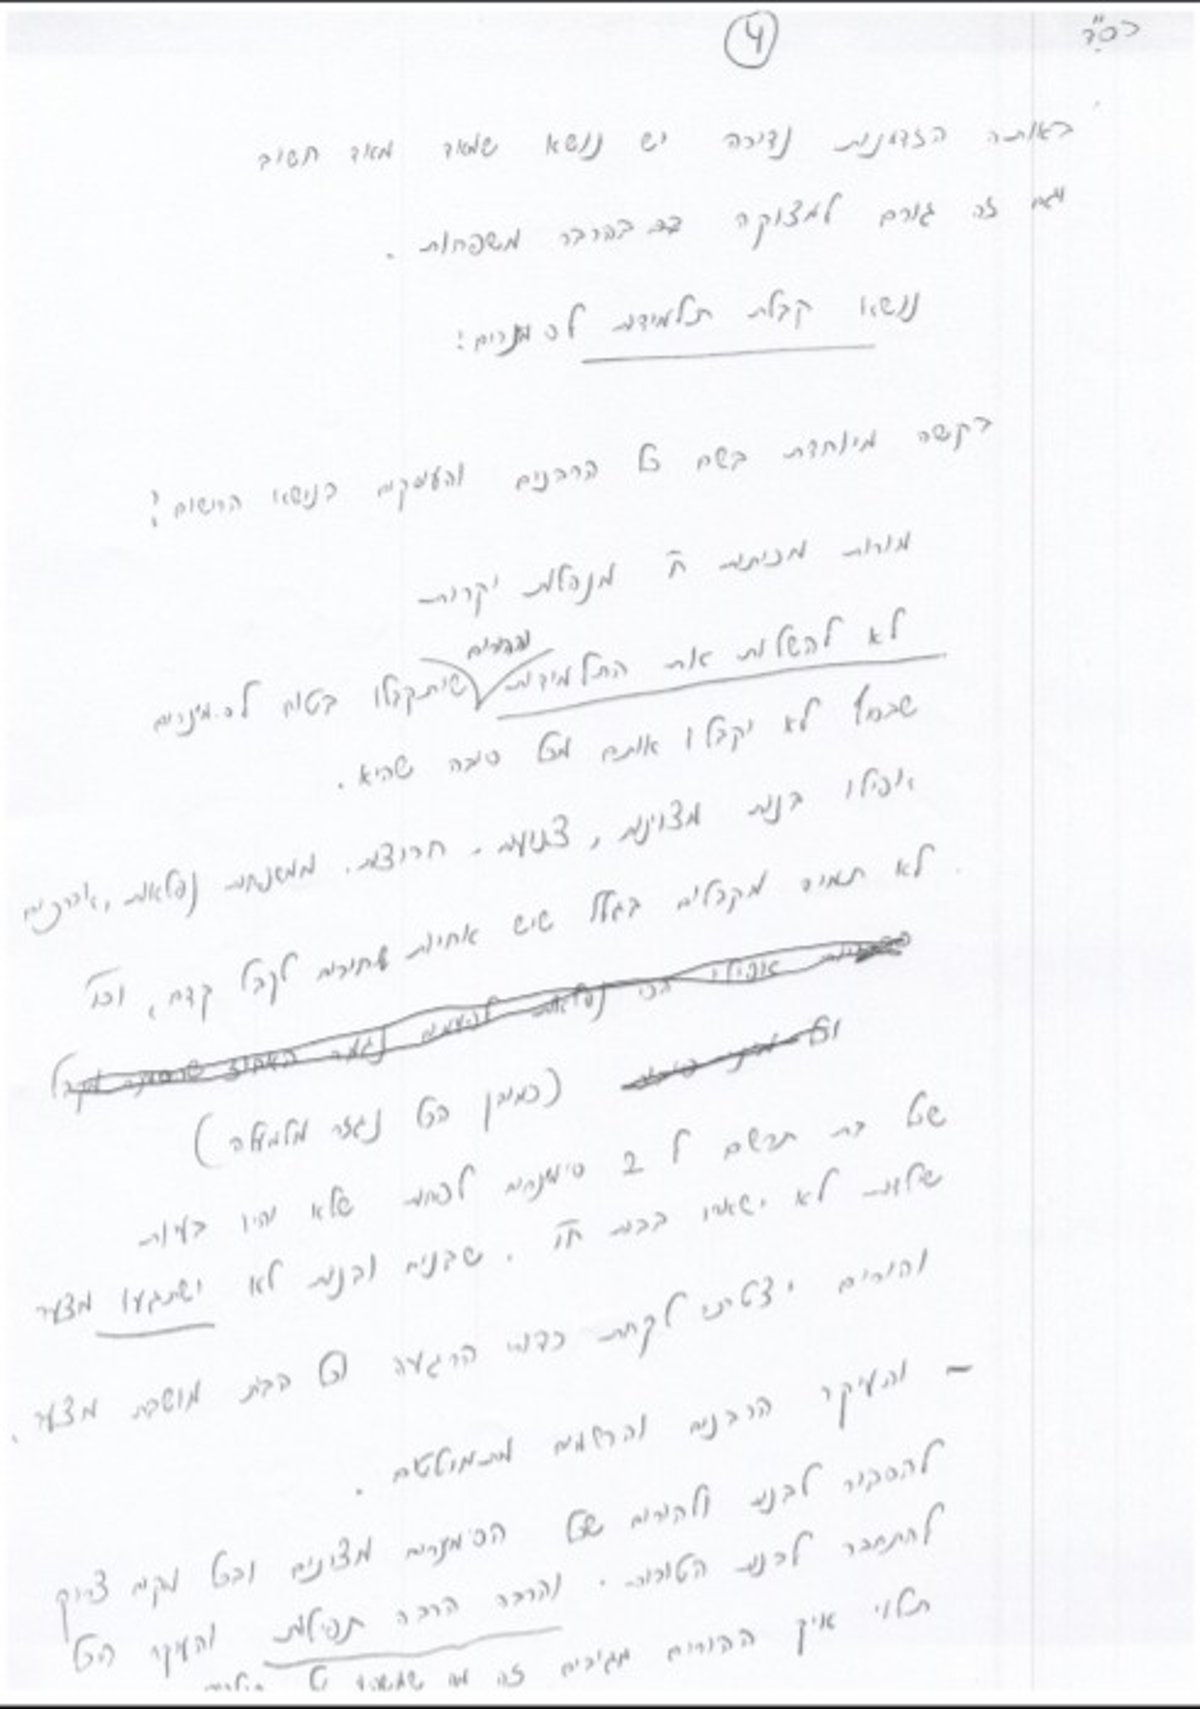 בס"ד
4
באותה הזדמנות נדירה יש נושא שמאד מאד חשוב
וגם זה גורם למצוקה בהרבה משפחות.
נושא קבלת תלמידות לסמנרים:
בקשה מיוחדת בשם כל הרבנים והעוסקים בנושא הרישום:
מורות מכיתות ח' מנהלות יקרות
והורים
לא להשלות את התלמידות שיתקבלו בטוח לסמינרים
שבחוץ לא יקבלו אותם מכל סיבה שהיא.
אפילו בנות מצוינות, צנועות, חרוצות, ממשפחות נפלאות,
לא תמיד מקבלים בגלל שיש אחיות שחייבים לקבל קודם, וכו'
אפילו הכי נפלאות
(כמובן הכל נגזר מלמעלה)
שכל בת תרשם ל 2 סימנרים לפחות שלא יהיו בעיות
שילדות לא ישארו בבית ח"ו. שבנים ובנות לא ישתגעו מצער
והורים יצטרכו לקחת כדורי הרגעה וכל הבית מושבת מצער.
– והעיקר הרבנים והרשמים מתמוטטים.
להסביר לבנות ולהורים שכל הסימנרים מצוינים ובכל מקום צריך
להתחבר לבנות הטובות. והרבה הרבה תפילות והעיקר הכל
תלוי איך ההורים מגיבים זה מה